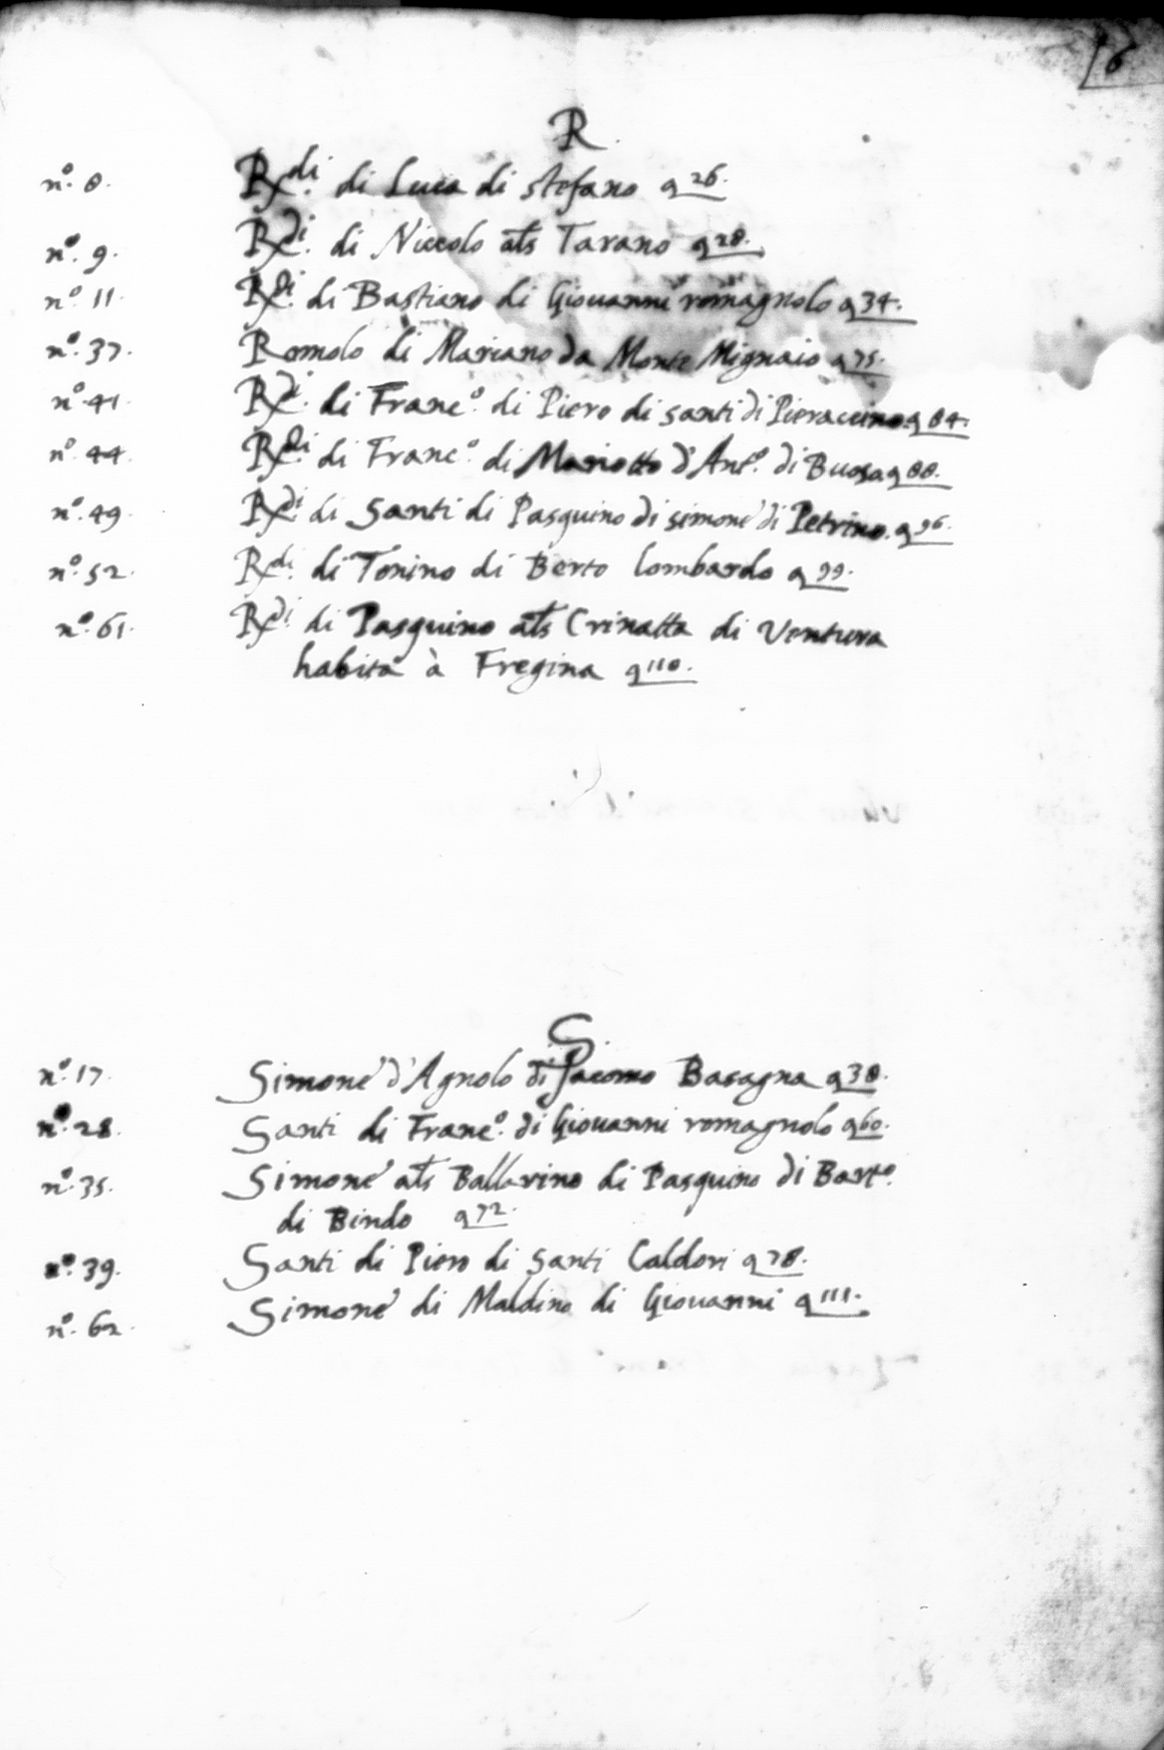 16
R
n.º 8. Rx.di di Luca di stefano q 26.
n.º 9. Rx.di di Niccolo als Tarano q 28.
n.º 11. Rx.di di Bastiano di Giouanni romagnolo q 34.
n.º 37. Romolo di Mariano da Monte Mignaio q 75.
n.º 41. Rx.di di Franc.º di Piero di santi di Pieraccino q 84.
n.º 44. Rx.di di Franc.º di Mariotto d'Ant.º di Buosa q 88.
n.º 49. Rx.di di Santi di Pasquino di simone di Petrino. q 96.
n.º 52. Rx.di di Tonino di Berto lombardo q 99.
n.º 61. Rx.di di Pasquino als Crinatta di Ventura
habita à Fregina q 110.
S
n.º 17. Simone d'Agnolo di Jacomo Basagna q 38.
n.º 28. Santi di Franc.º di Giouanni romagnolo q 60.
n.º 35. Simone als Ballerino di Pasquino di Bart.º
di Bindo q 72.
n.º 39. Santi di Piero di santi Caldori q 78.
n.º 62. Simone di Maldino di Giouanni q 111.